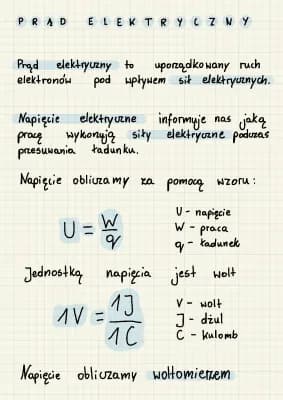 PRĄD ELEKTRYCZNY
Prąd elektryczny to uporządkowany ruch
elektronów pod wpływem sił elektrycznych.
Napięcie elektryczne informuje nas jaką
pracę wykonują siły elektryczne podczas
przesuwania ładunku.
Napięcie obliczamy za pomocą wzoru:
U = W/q
U - napięcie
W - praca
q - ładunek
Jednostką napięcia jest wolt
1V = 1J/1C
V - wolt
J - dżul
C - kulomb
Napięcie obliczamy woltomierzem